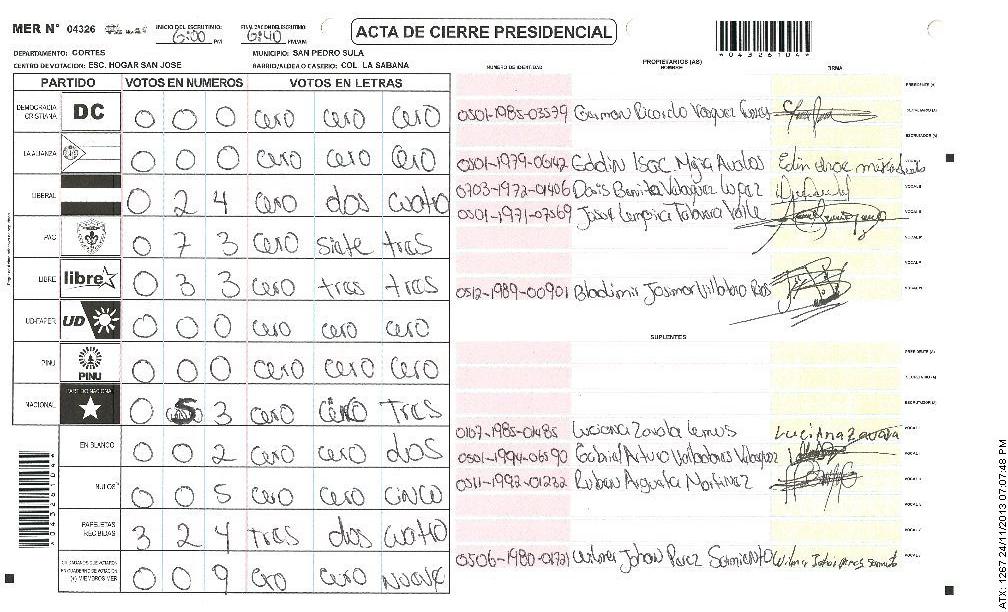 MER N° 04326 INICIO DEL ESCRUTINIO: 6:00 PM FINALIZACION ESCRUTINIO: 6:40 PM/AM ACTA DE CIERRE PRESIDENCIAL
*04326104*
DEPARTAMENTO: CORTES MUNICIPIO: SAN PEDRO SULA
CENTRO DE VOTACION: ESC. HOGAR SAN JOSE BARRIO/ALDEA O CASERIO: COL. LA SABANA
NUMERO DE IDENTIDAD PROPIETARIOS (AS) NOMBRE FIRMA
PARTIDO VOTOS EN NUMEROS VOTOS EN LETRAS
DEMOCRACIA CRISTIANA DC 0 0 0 cero cero cero
LA ALIANZA 0 0 0 cero cero cero
LIBERAL 0 2 4 cero dos cuatro
PAC 0 7 3 cero siete tres
LIBRE libre 0 3 3 cero tres tres
UD-FAPER UD 0 0 0 cero cero cero
PINU PINU 0 0 0 cero cero cero
NACIONAL PARTIDO NACIONAL 0 5 3 cero tres
EN BLANCO 0 0 2 cero cero dos
NULOS 0 0 5 cero cero cinco
PAPELETAS RECIBIDAS 3 2 4 tres dos cuatro
CIUDADANOS QUE VOTARON EN CUADERNO DE VOTACION (+) MIEMBROS MER 0 0 9 cero nueve
PRESIDENTE (A)
0501-1985-03579 German Ricardo Vasquez
SECRETARIO (A)
ESCRUTADOR (A)
0501-1979-06142 Eddin Isac Mejia Avalos
0703-1972-01406 Dais Benita Velasquez Lopez
0501-1971-07569 Jose Lempira Tabora Valle
0512-1989-00901 Bladimir Josimar Villalobo Rios
SUPLENTES
PRESIDENTE (A)
SECRETARIO (A)
ESCRUTADOR (A)
0107-1985-01485 Luciana Zavala Lemus Luciana Zavala
0501-1994-06590 Gabriel Arturo Valladares Velasquez
0511-1992-01232 Ruban Argueta Martinez
0506-1980-01721 Wilmer Johan Perez Sarmiento
ATX: 1267 24/11/2013 07:07:48 PM